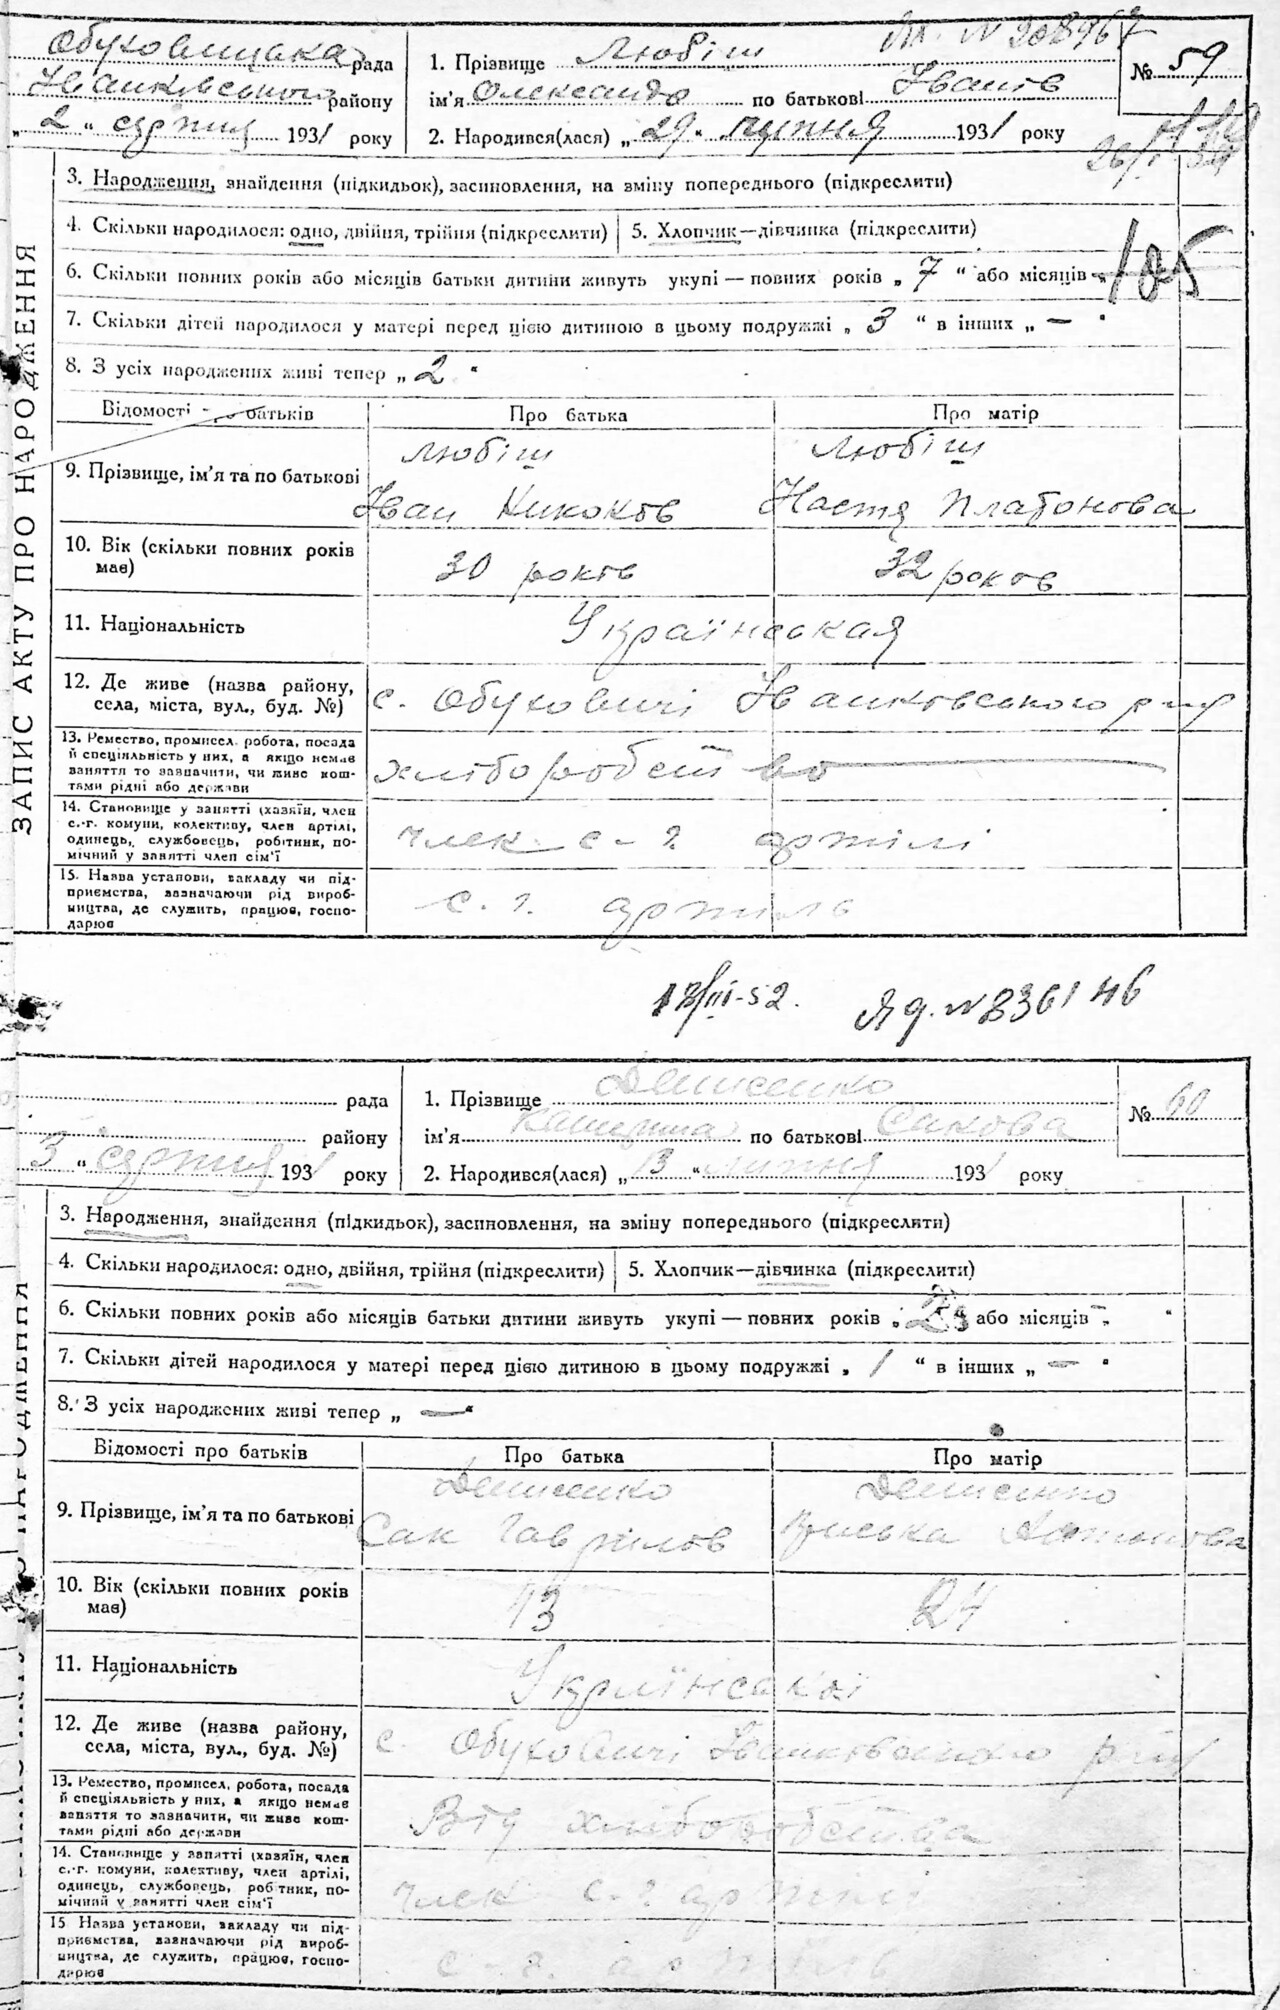 ЗАПИС АКТУ ПРО НАРОДЖЕННЯ
Обуховицька рада
Іванківського району
„ 2 “ серпня 1931 року
1. Прізвище Любіш
ім'я Олександр по батькові Іванів
2. Народився(лася) „ 29 “ липня 1931 року
№ 59
3. Народження, знайдення (підкидьок), засиновлення, на зміну попереднього (підкреслити)
4. Скільки народилося: одно, двійня, трійня (підкреслити) 5. Хлопчик—дівчинка (підкреслити)
6. Скільки повних років або місяців батьки дитини живуть укупі — повних років „ 7 “ або місяців „
7. Скільки дітей народилося у матері перед цією дитиною в цьому подружжі „ 3 “ в інших „ — “
8. З усіх народжених живі тепер „ 2 “
Відомості про батьків Про батька Про матір
9. Прізвище, ім'я та по батькові
Любіш Любіш
Іван Настя Платонова
10. Вік (скільки повних років має)
30 років 32 років
11. Національність Українськая
12. Де живе (назва району, села, міста, вул., буд. №)
с. Обуховичі Іванківського р-ну
13. Ремество, промисел, робота, посада
й спеціяльність у них, а якщо немає
заняття то зазначити, чи живе кош-
тами рідні або держави
хліборобство
14. Становище у занятті (хазяїн, член
с.-г. комуни, колективу, член артілі,
одинець, службовець, робітник, по-
мічний у занятті член сім'ї
член с-г. артілі
15. Назва установи, закладу чи під-
приємства, зазначаючи рід вироб-
ництва, де служить, працює, госпо-
дарює
с. г. артіль
рада
району
„ 3 “ серпня 1931 року
1. Прізвище Денисенко
ім'я по батькові Сакова
2. Народився(лася) „ 13 “ липня 1931 року
№ 60
3. Народження, знайдення (підкидьок), засиновлення, на зміну попереднього (підкреслити)
4. Скільки народилося: одно, двійня, трійня (підкреслити) 5. Хлопчик—дівчинка (підкреслити)
6. Скільки повних років або місяців батьки дитини живуть укупі — повних років „ “ або місяців „ “
7. Скільки дітей народилося у матері перед цією дитиною в цьому подружжі „ 1 “ в інших „ — “
8. З усіх народжених живі тепер „ — “
Відомості про батьків Про батька Про матір
9. Прізвище, ім'я та по батькові
Денисенко Денисенко
Сак Гаврилов
10. Вік (скільки повних років має)
24
11. Національність
12. Де живе (назва району, села, міста, вул., буд. №)
с. Обуховичі Іванківського р-ну
13. Ремество, промисел, робота, посада
й спеціяльність у них, а якщо немає
заняття то зазначити, чи живе кош-
тами рідні або держави
14. Становище у занятті (хазяїн, член
с.-г. комуни, колективу, член артілі,
одинець, службовець, робітник, по-
мічний у занятті член сім'ї
член с.-г. артілі
15 Назва установи, закладу чи під-
приємства, зазначаючи рід вироб-
ництва, де служить, працює, госпо-
дарює
с-г. артіль